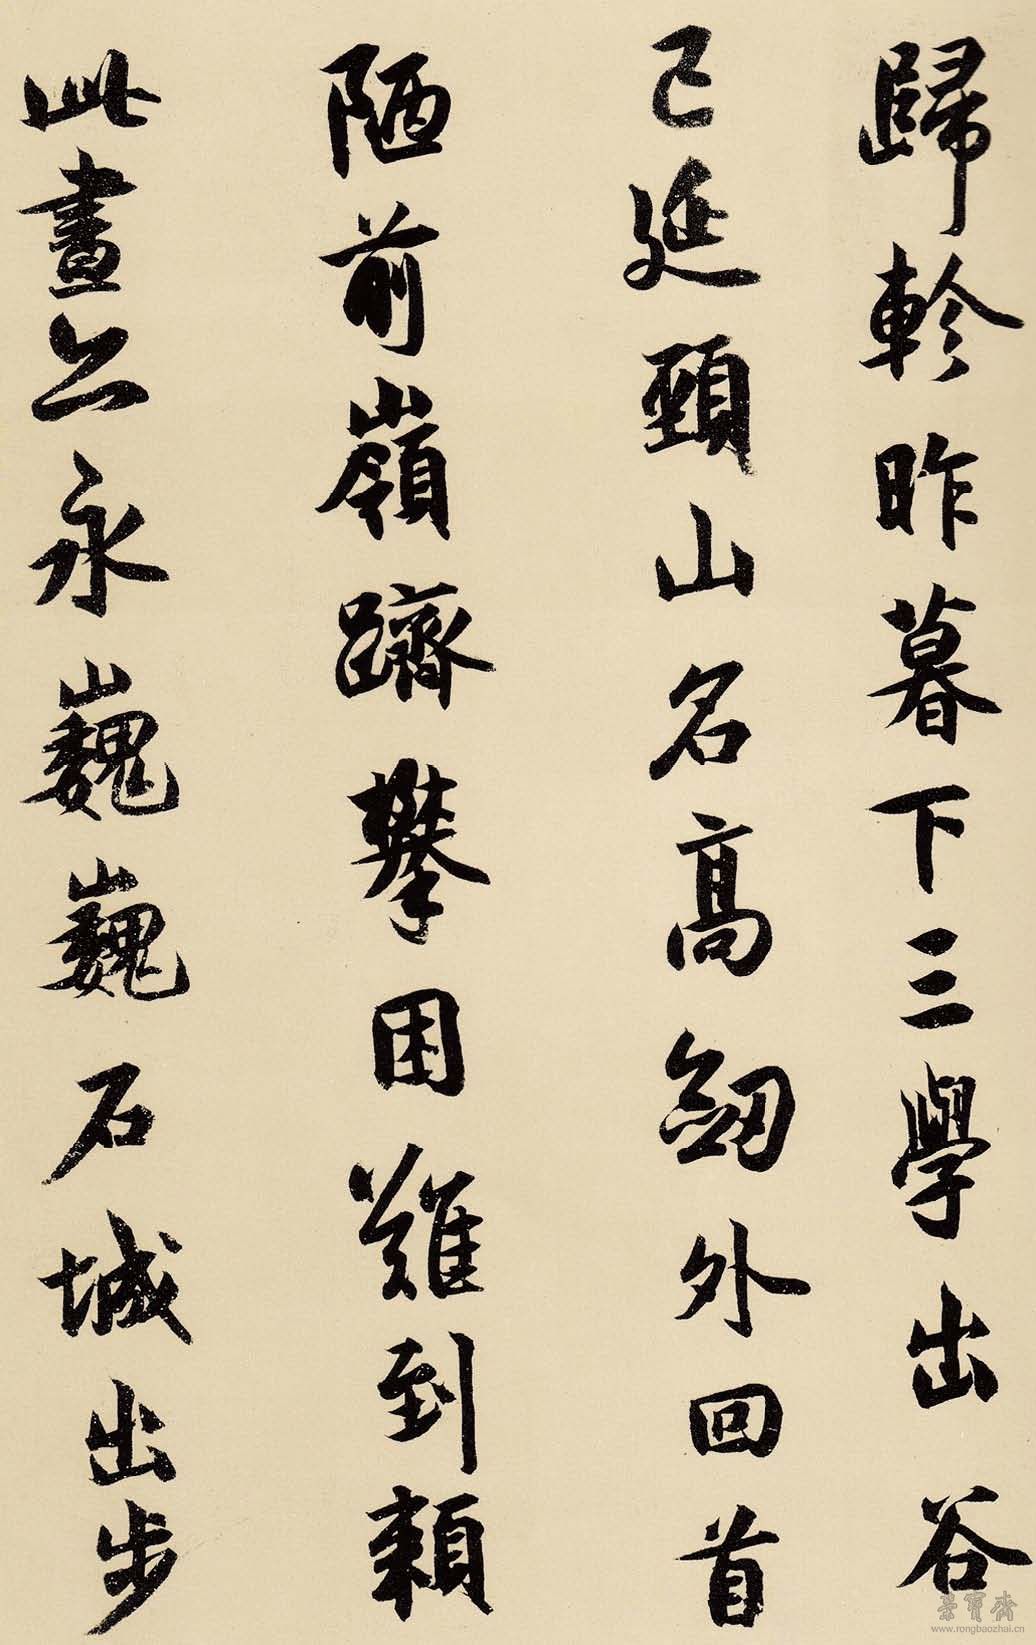 歸軫昨暮下三學出谷
已延頸山名高劒外回首
陋前嶺躋攀困難到賴
此晝之永巍巍石城出步
榮寳齋
www.rongbaozhai.cn